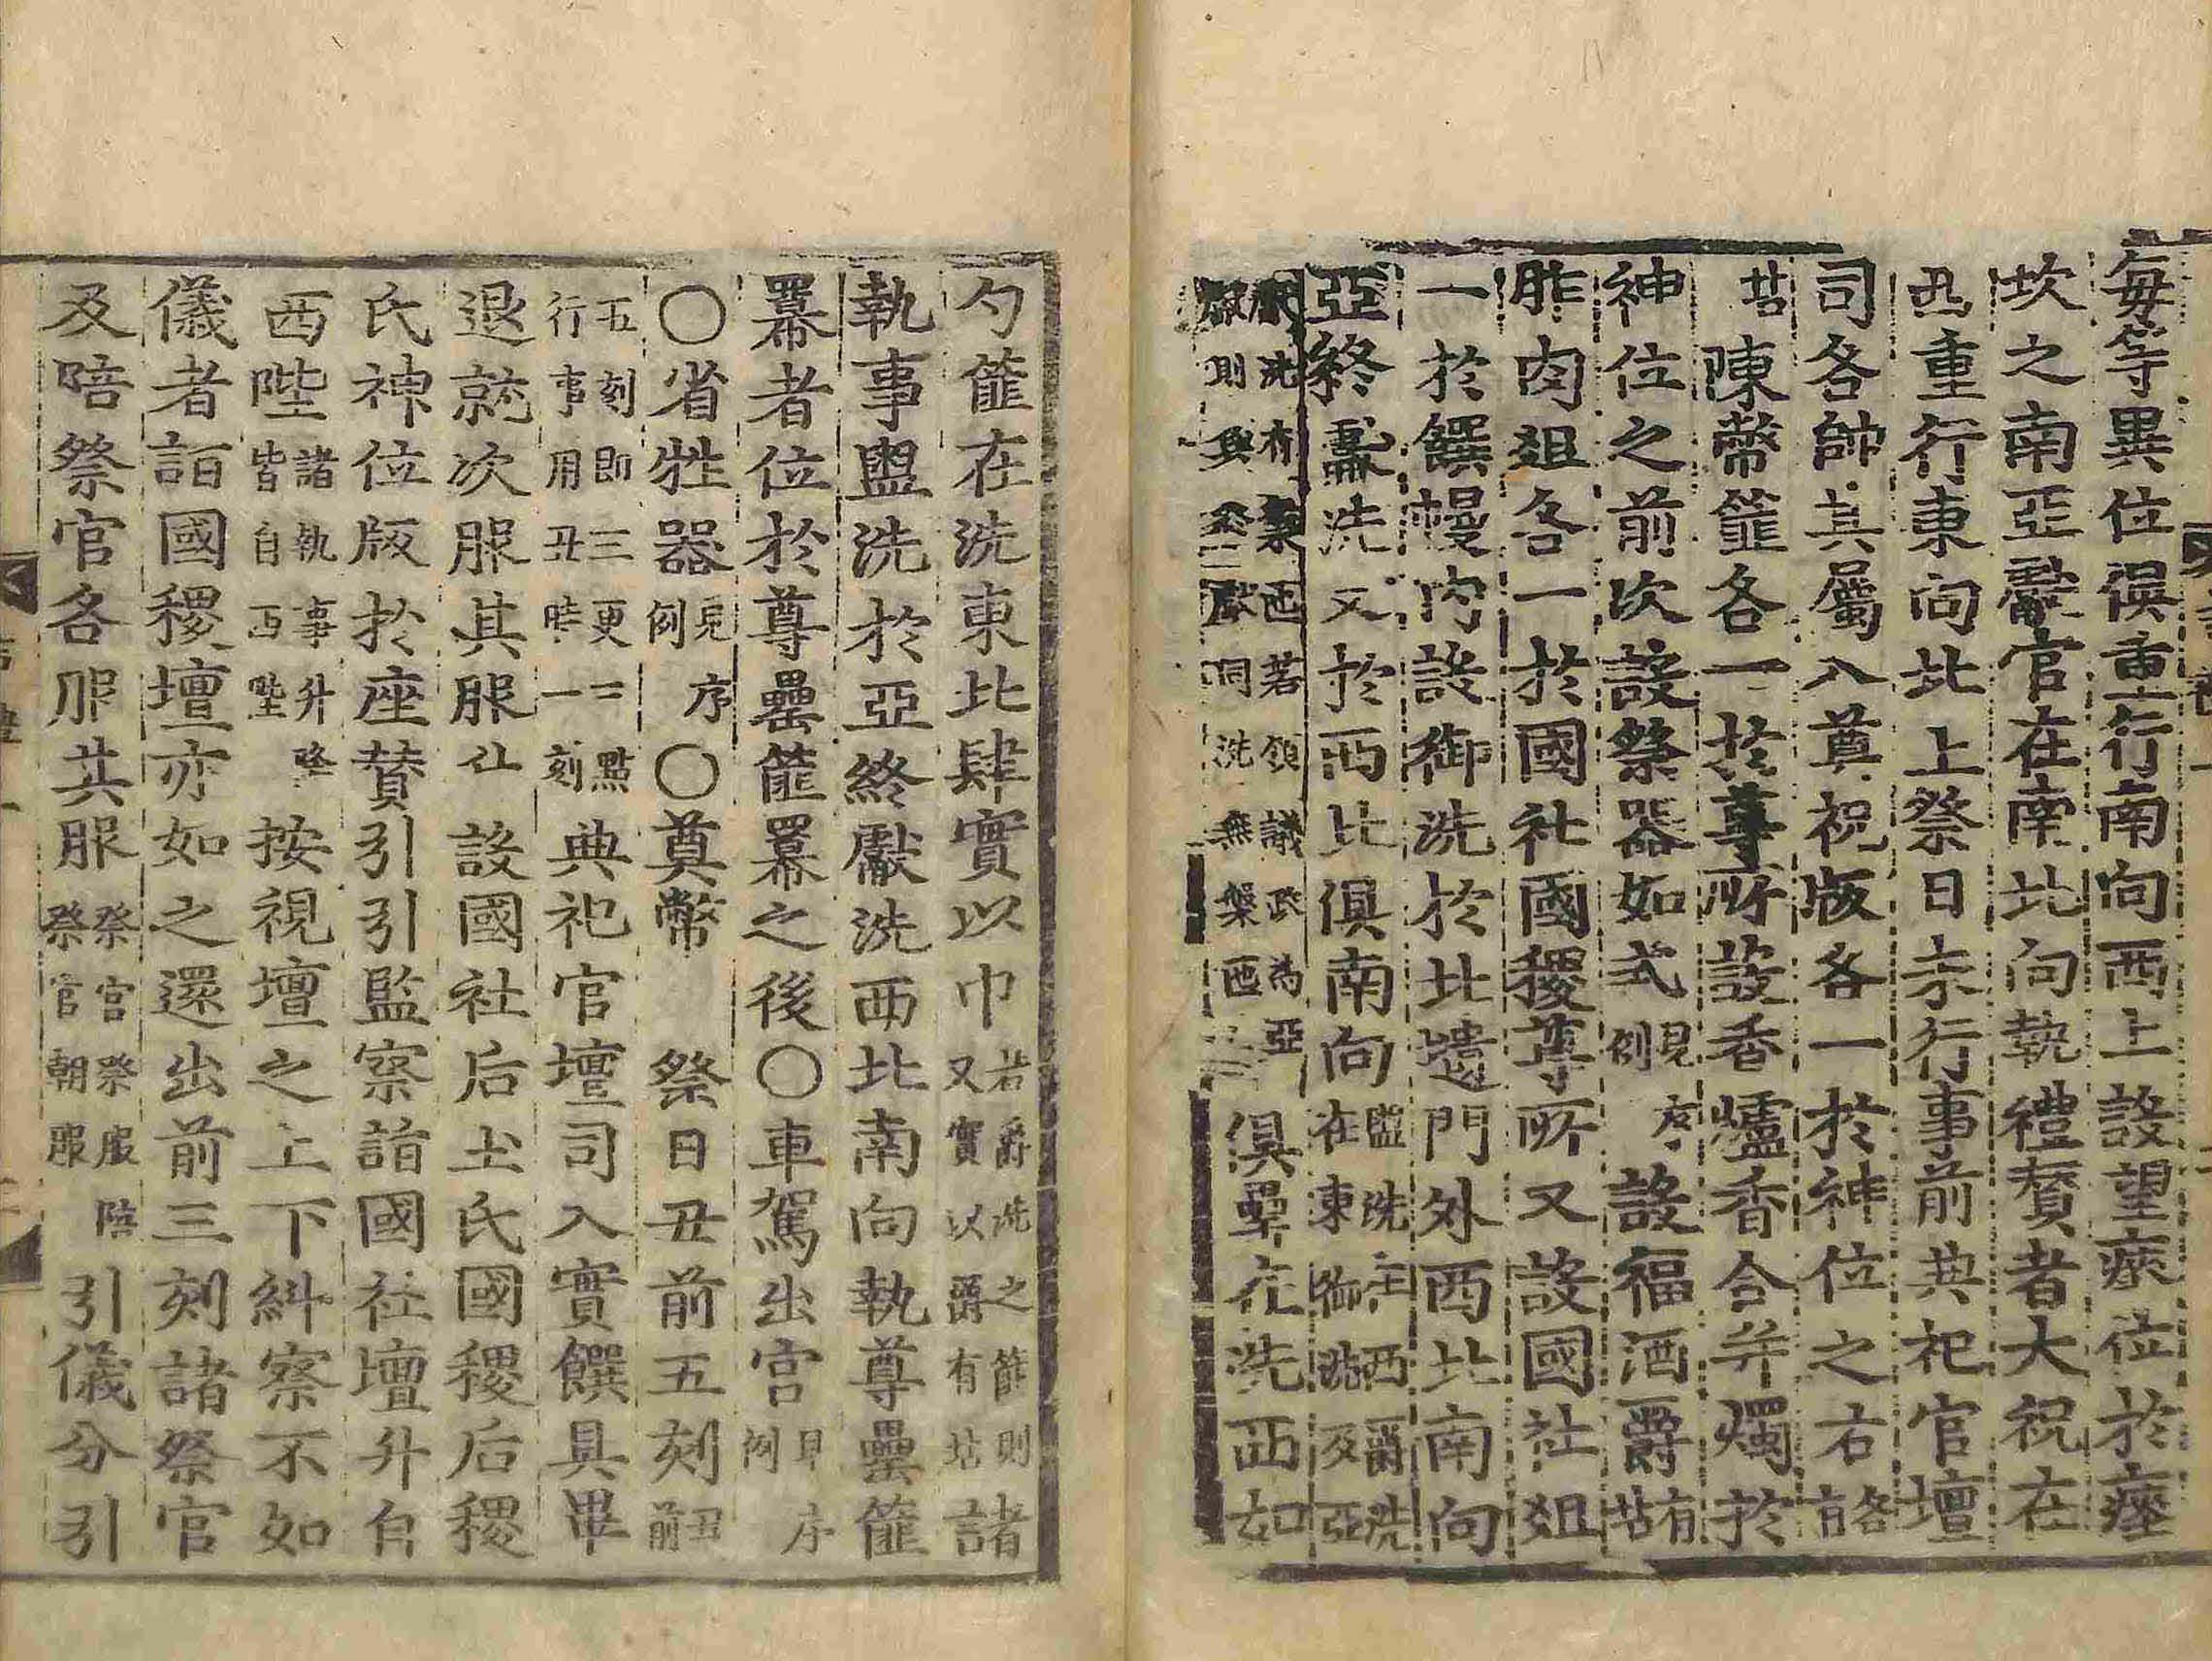 每等異位俱重行南向西上設望瘞位於瘞
坎之南亞獻官在南北向執禮賛者大祝在
西重行東向北上祭日未行事前典祀官壇
司各帥其屬入奠祝版各一於神位之右各有
坫陳幣篚各一於尊所設香爐香合并燭於
神位之前次設祭器如式見序例設福酒爵有坫
胙肉俎各一於國社國稷尊所又設國社俎
一於饌幔內設御洗於北壝門外西北南向
亞終獻洗又於西北俱南向盥洗在西爵洗在東御洗及亞
獻洗有槃匜若領議政為亞獻則與終獻同洗無槃匜俱罍在洗西加
勺篚在洗東北肆實以巾若爵洗之篚則又實以爵有坫諸
執事盥洗於亞終獻洗西北南向執尊罍篚
冪者位於尊罍篚冪之後○車駕出宮見序例
○省牲器見序例○奠幣祭日丑前五刻丑前
五刻即三更二點行事用丑時一刻典祀官壇司入實饌具畢
退就次服其服仕設國社后土氏國稷后稷
氏神位版於座賛引引監察詣國社壇升自
西陛諸執事升降皆自西陛按視壇之上下糾察不如
儀者詣國稷壇亦如之還出前三刻諸祭官
及陪祭官各服其服祭官祭服陪祭官朝服引儀分引